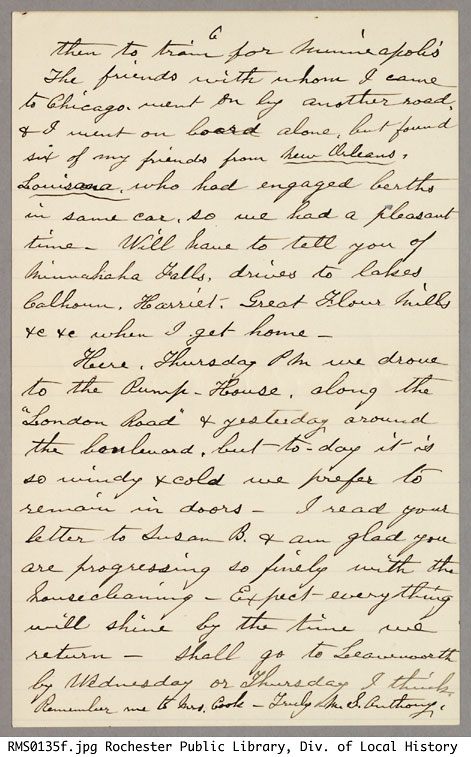 6
then to train for Minneapolis
The friends with whom I came
to Chicago, went on by another road,
& I went on board alone, but found
six of my friends from New Orleans,
Louisana, who had engaged berths
in same car, so we had a pleasant
time - Will have to tell you of
Minnahaha Falls, drives to lakes
Calhoun, Harriet, Great Flour Mills
&c &c when I get home -
Here, Thursday PM we drove
to the Pump-House, along the
"London Road" & yesterday around
the boulevard, but to-day it is
so windy & cold we prefer to
remain in doors - I read your
letter to Susan B. & am glad you
are progressing so finely with the
housecleaning - Expect everything
will shine by the time we
return - shall go to Leavenworth
by Wednesday or Thursday I think
Remember me to Mrs. Cook - Truly M. S. Anthony.
RMS0135f.jpg Rochester Public Library, Div. of Local History